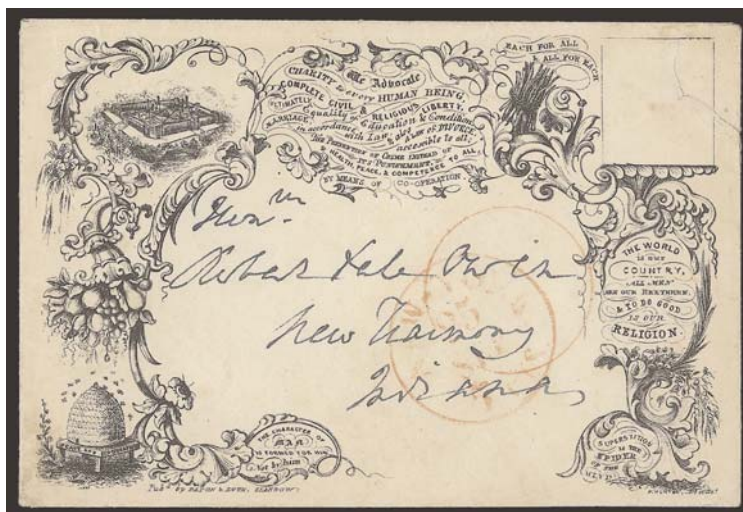 We Advocate
CHARITY to every HUMAN BEING,
COMPLETE CIVIL & RELIGIOUS LIBERTY,
ULTIMATELY Equality of Education & Condition
MARRIAGE, in accordance with Law, & also a LAW OF DIVORCE
accessible to all;
THE PREVENTION OF CRIME INSTEAD OF
ITS PUNISHMENT,
HEALTH, PEACE, & COMPETENCE TO ALL,
BY MEANS OF CO-OPERATION
EACH FOR ALL
& ALL FOR EACH
Hon.
Robert Dale Owen
New Harmony
Indiana
THE WORLD
IS OUR
COUNTRY,
ALL MEN
ARE OUR BRETHREN,
& TO DO GOOD
IS OUR
RELIGION.
THE CHARACTER OF
MAN
IS FORMED FOR HIM
Not by him
SUPERSTITION
IS THE
SPIDER
OF THE
MIND
GLASGOW